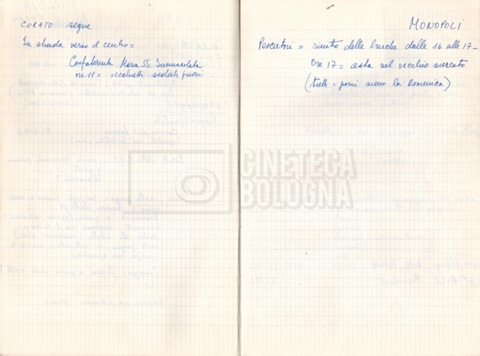 CORATO: segue
In strada verso il centro =
Confraternita Maria SS. Immacolata
ore 11 = uscoletti seduti fuori
MONOPOLI
Pescatori = rientro delle barche dalle 16 alle 17 -
Ore 17 = asta nel vecchio mercato
(tutti i giorni meno la Domenica)
CINETECA
BOLOGNA